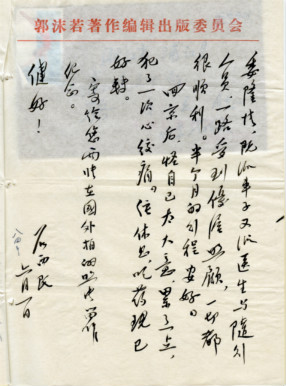 郭沫若著作编辑出版委员会
委隆情，既派车子又派医生与随行
人员，一路受到优渥照顾，一切都
很顺利。半个月的行程安好。
回京后，怪自己太大意，累了一点，
犯了一次心绞痛。经休息，吃药现已
好转。
寄作您两张在国外拍的照片留作
纪念。
健好！
石西民
六月一日